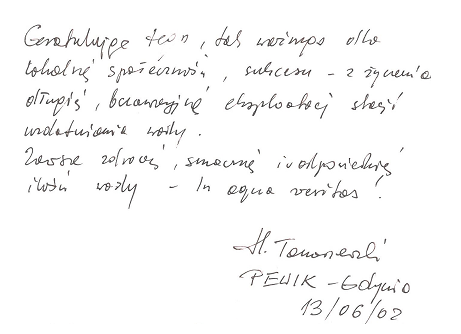 Gratulując tego, tak ważnego dla
lokalnej społeczności, sukcesu – z życzeniami
długiej, bezawaryjnej eksploatacji stacji
uzdatniania wody.
Zawsze zdrowej, smacznej i odpowiedniej
ilości wody – In aqua veritas!
H.
PEWIK – Gdynia
13/06/02